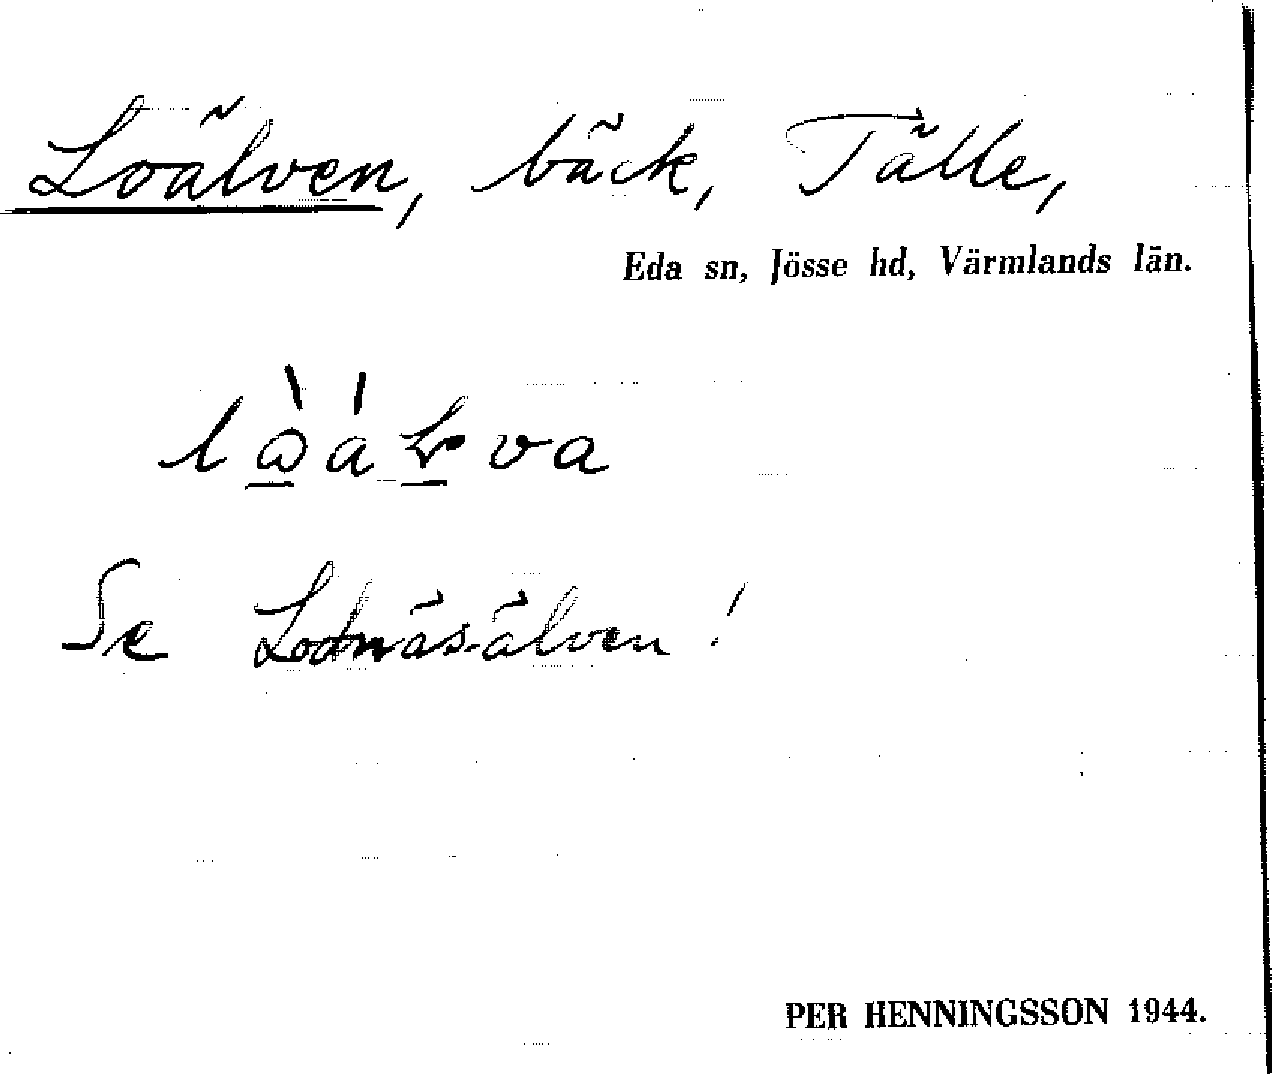 Loälven, bäck, Tälle,
Eda sn, Jösse hd, Värmlands län.
Se Lodnäs-älven!
PER HENNINGSSON 1944.